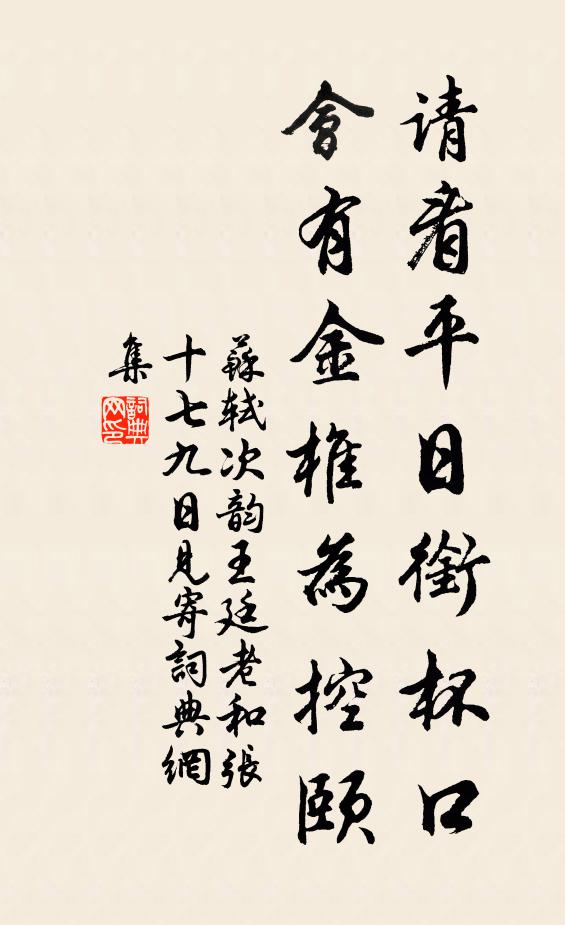 请看平日銜杯口
會有金椎為控頤
蘇軾次韵王廷老和張
十七九日見寄詞典網
集
詞典网印